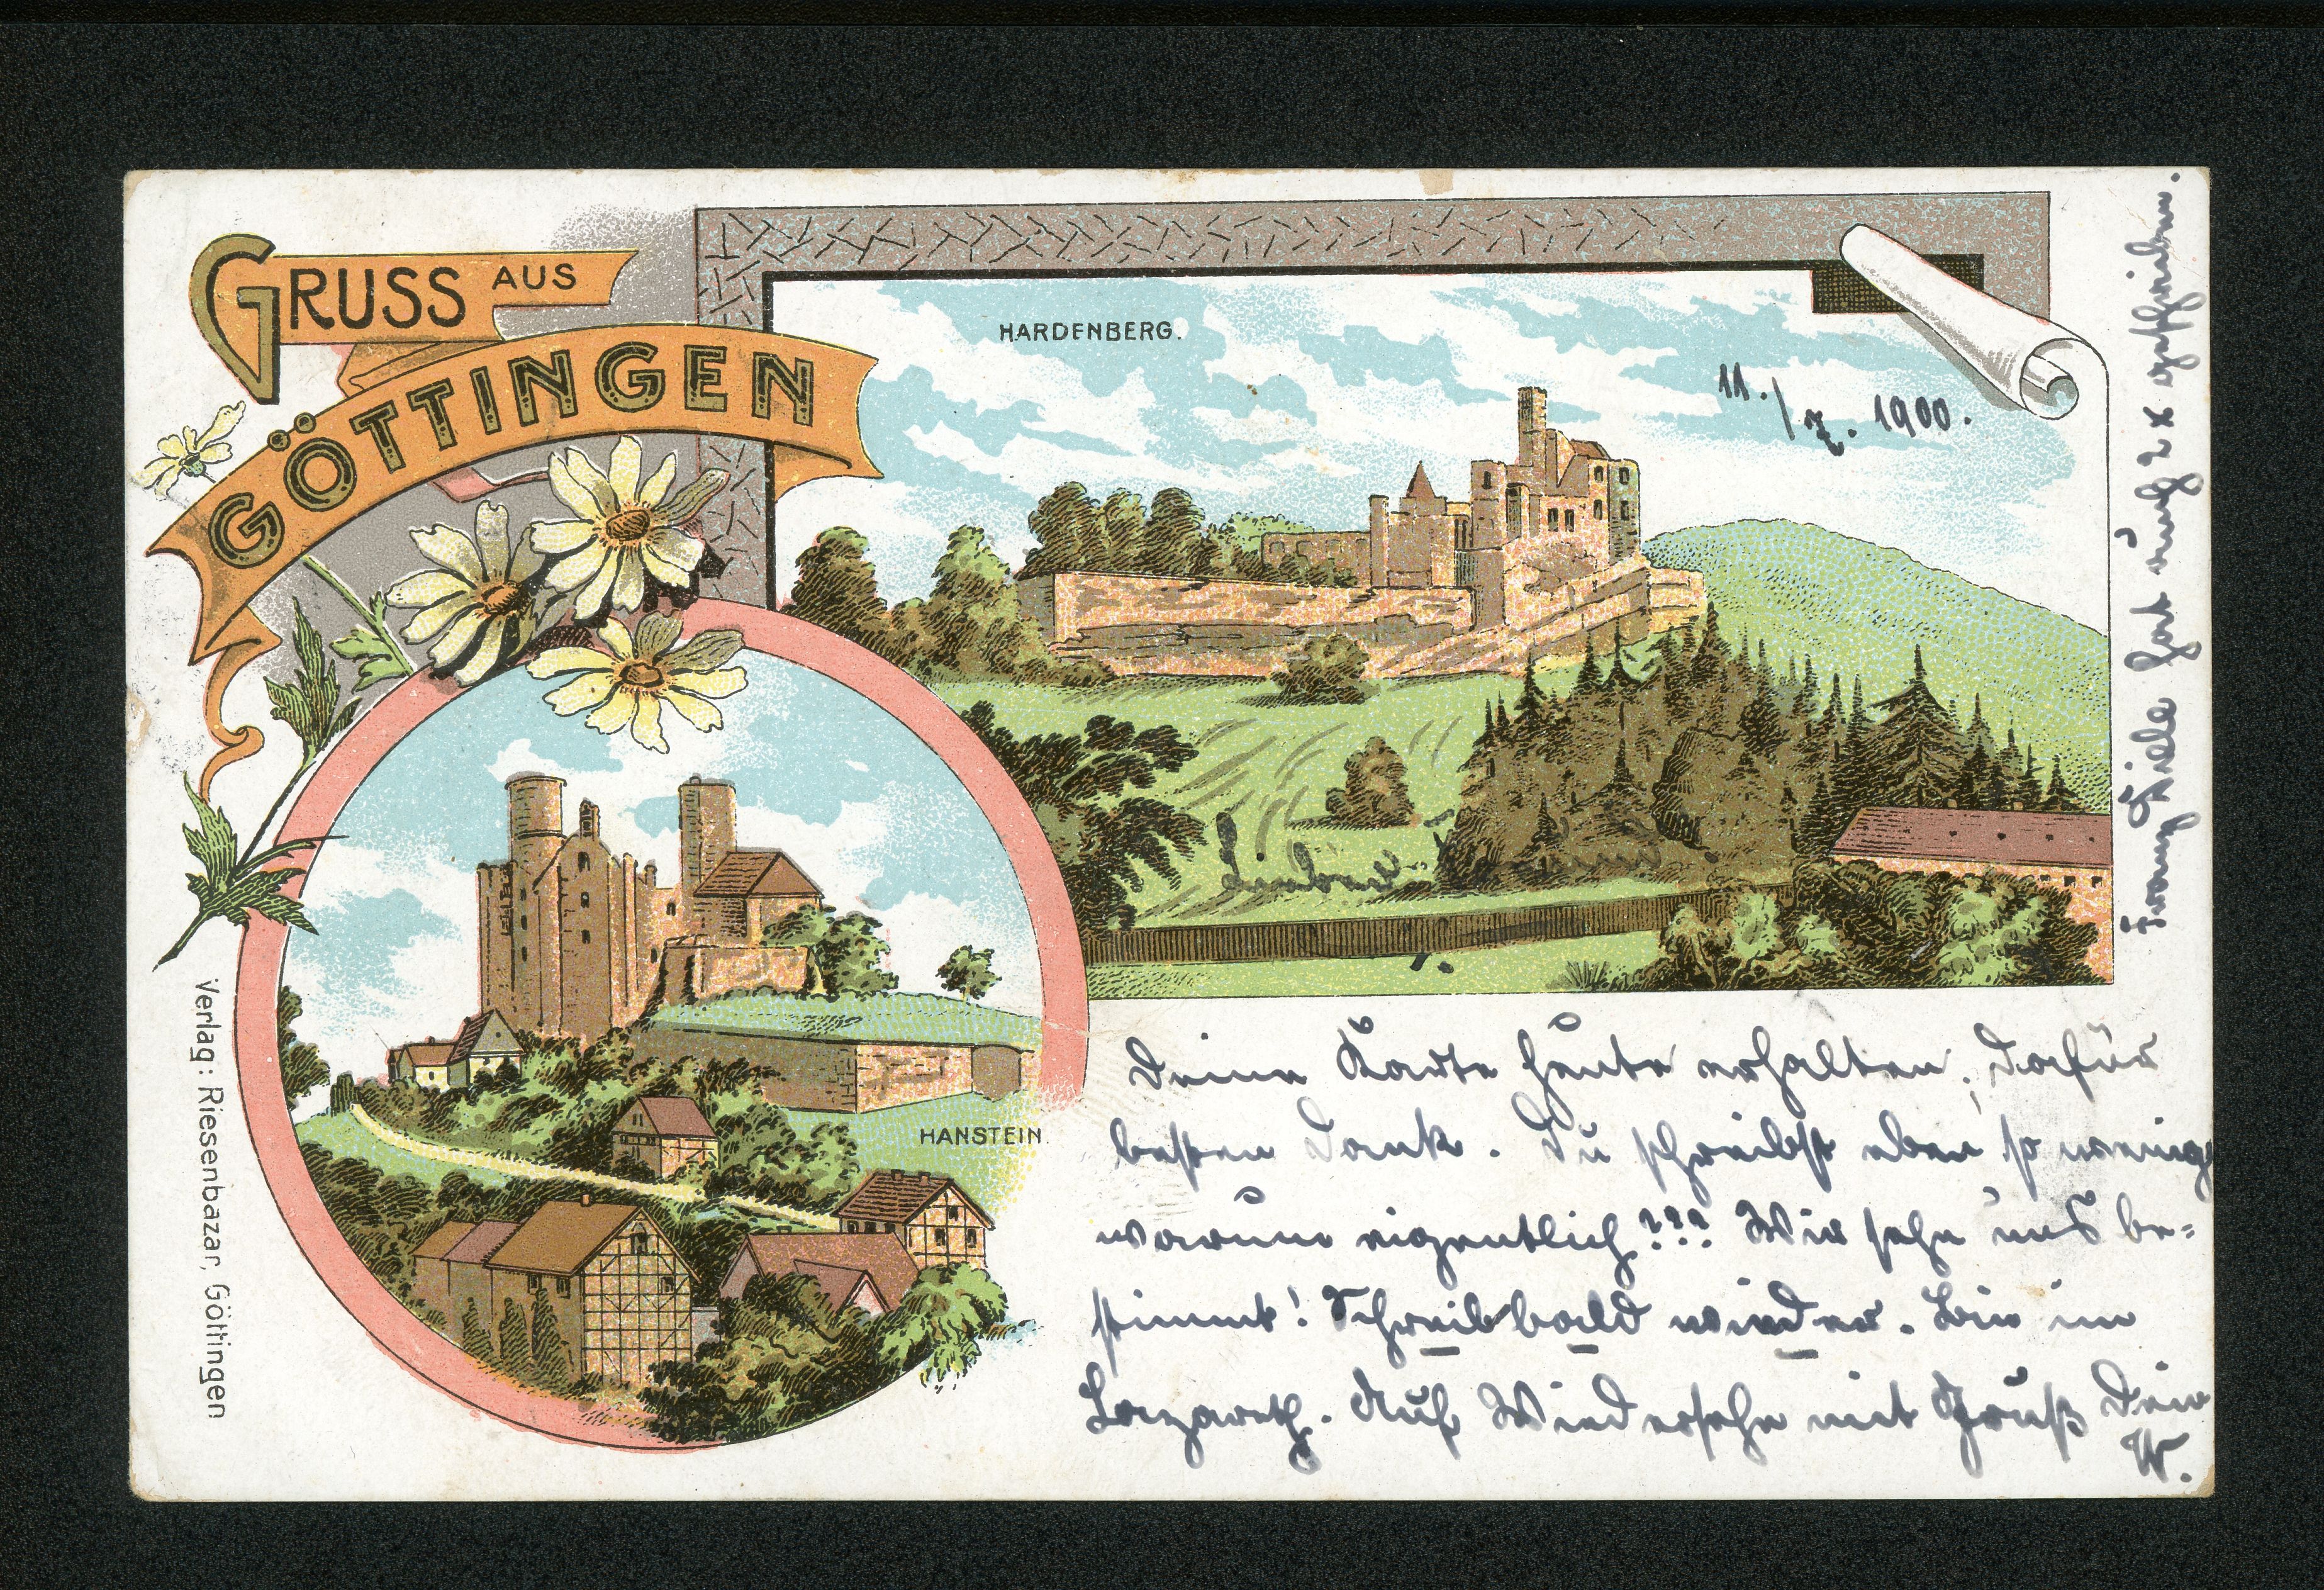 GRUSS AUS
GÖTTINGEN
HARDENBERG.
11./7. 1900.
HANSTEIN.
Verlag: Riesenbazar, Göttingen
Deine Karte heute erhalten, Dafür
besten Dank. Du schreibst aber so wenig,
warum eigentlich??? Wir sehn uns be=
stimmt! Schreib bald wieder. Bin im
Lazareth. Auf Wiedersehn mit Gruß Dein
W.
Franz Thiele hat auch 2 x geschrieben.